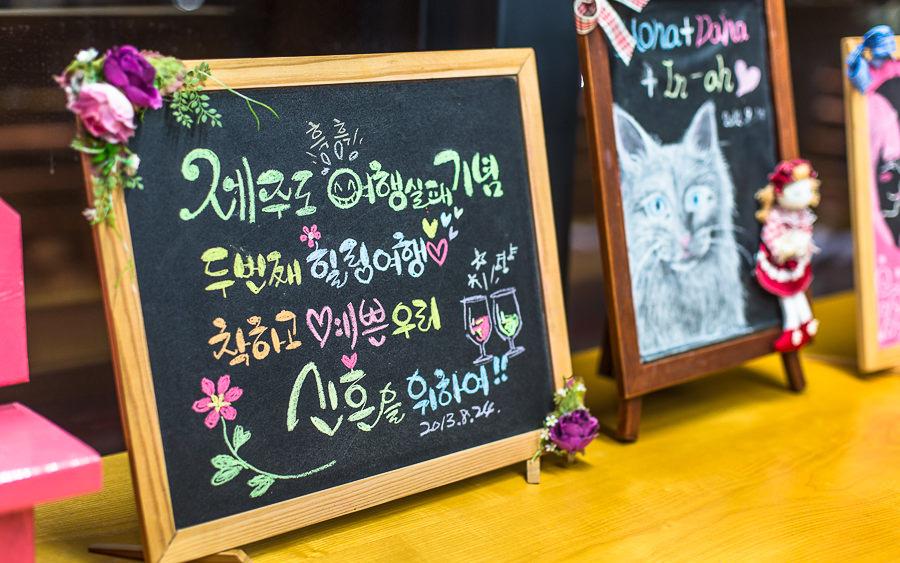 흥흥
제주도 여행실패기념
두번째 힐링여행
치얼스
착하고 예쁜우리
신혼을 위하여!!
2013.8.24.
+Dana
+ In-ah